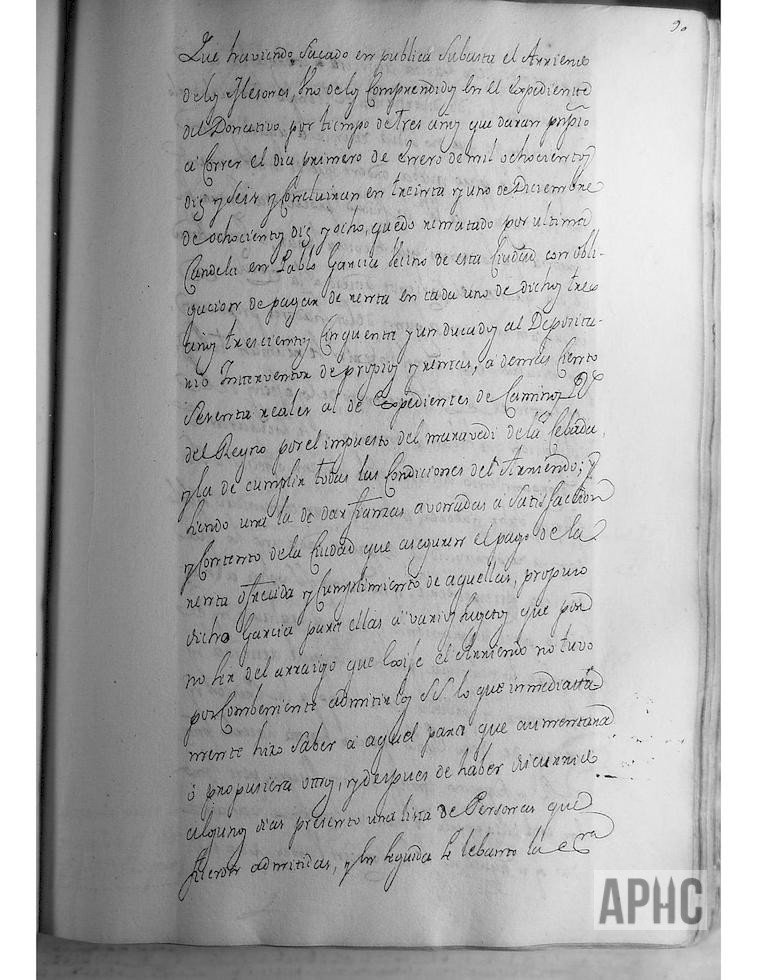 90
Que haviendo sacado en publica Subasta el Arriendo
de los Mesones, Uno de los Comprendidos en el Expediente
del Donativo, por tiempo de tres años que daran prinpio
á Correr el dia primero de Enero de mil ochocientos
diez y Seis y Concluiran en treinta y uno de Diciembre
de ochocientos diez y ocho, quedo rematado por ultima
Candela en Pablo Garcia Vecino de esta Ciudad con obli-
gacion de pagar de renta en cada uno de dichos tres
años trescientos Cinquenta y un ducados al Deposita-
rio Interventor de propios y rentas, á demas Ciento
Sesenta reales al de Expedientes de Caminos Rs
del Reyno por el impuesto del maravedi de la Cebada,
y la de cumplir todas las Condiciones del Arriendo; y
siendo una la de dar fianzas avonadas á Satisfaccion
y Contento de la Ciudad que aseguren el pago de la
renta ofrecida y Cumplimiento de aquellas, propuso
dicho Garcia para ellas á varios sugetos que por
no ser del arraigo que exije el Arriendo no tuvo
por Combeniente admitirlos S.S. lo que inmediata-
mente hizo Saber á aquel para que aumentara
ó propusiera otros, y despues de haber discurrido
algunos dias presento una lista de Personas que
fueron admitidas, y en seguida se lebanto la Esra
APHC